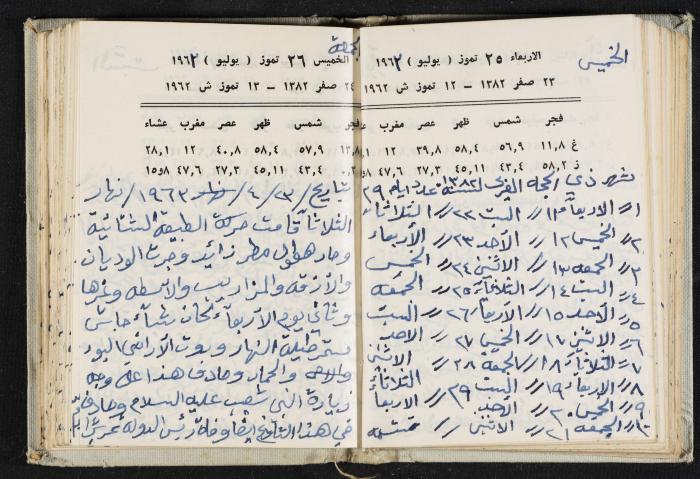 الخميس
الاربعاء ٢٥ تموز ( يوليو ) ١٩٦٣
٢٣ صفر ١٣٨٢ – ١٢ تموز ش ١٩٦٢
فجر شمس ظهر عصر مغرب عشاء
غ ١١,٨ ٥٦,٩ ٥٨,٤ ٣٩,٨ ١٢
ز ٥٨,٢ ٤٣,٤ ٤٥,١١ ٢٧,٣ ٤٧,٦
شهر ذي الحجه القمري لسنة ١٣٨٢ عدد ايام ٢٩
١// الاربعاء ١١// السبت ٢٢// الثلاثاء
٢// الخميس ١٢// الأحد ٢٣// الأربعاء
٣// الجمعه ١٣// الاثنين ٢٤// الخميس
٤// السبت ١٤// الثلاثاء ٢٥// الجمعه
٥// الأحد ١٥// الأربعاء ٢٦// السبت
٦// الاثنين ١٧// الخميس ٢٧// الاحد
٧// الثلاثاء ١٨// الجمعة ٢٨// الاثنين
٨// الاربعاء ١٩// السبت ٢٩// الثلاثاء
٩// الخميس ٢٠// الأحد الاربعا
١٠// الجمعه ٢١// الاثنين //
جمعة
الخميس ٢٦ تموز ( يوليو ) ١٩٦٣
٢٤ صفر ١٣٨٢ – ١٣ تموز ش ١٩٦٢
فجر شمس ظهر عصر مغرب عشاء
٥٧,٩ ٥٨,٤ ٤٠,٨ ١٢ ٢٨,١
٤٣,٤ ٤٥,١١ ٢٧,٣ ٤٧,٦ ١٥,٨
بتاريخ ٢٣/٤/١٩٦٣/ نهار
الثلاثاء قامت حركة الطبيعة الشتائية
وصار هطول مطر زائد وجرت الوديان
والأزقه والمزاريب والاسطه وغيرها
وثاني يوم الأربعاء كان شتاء
مستمر طيلة النهار وروت الأراضي البور
والحمار وصادف هذا على وجه
زيارة النبي شعيب عليه السلام وصادف
في هذا التاريخ ايضا وفاة رئيس الدولة